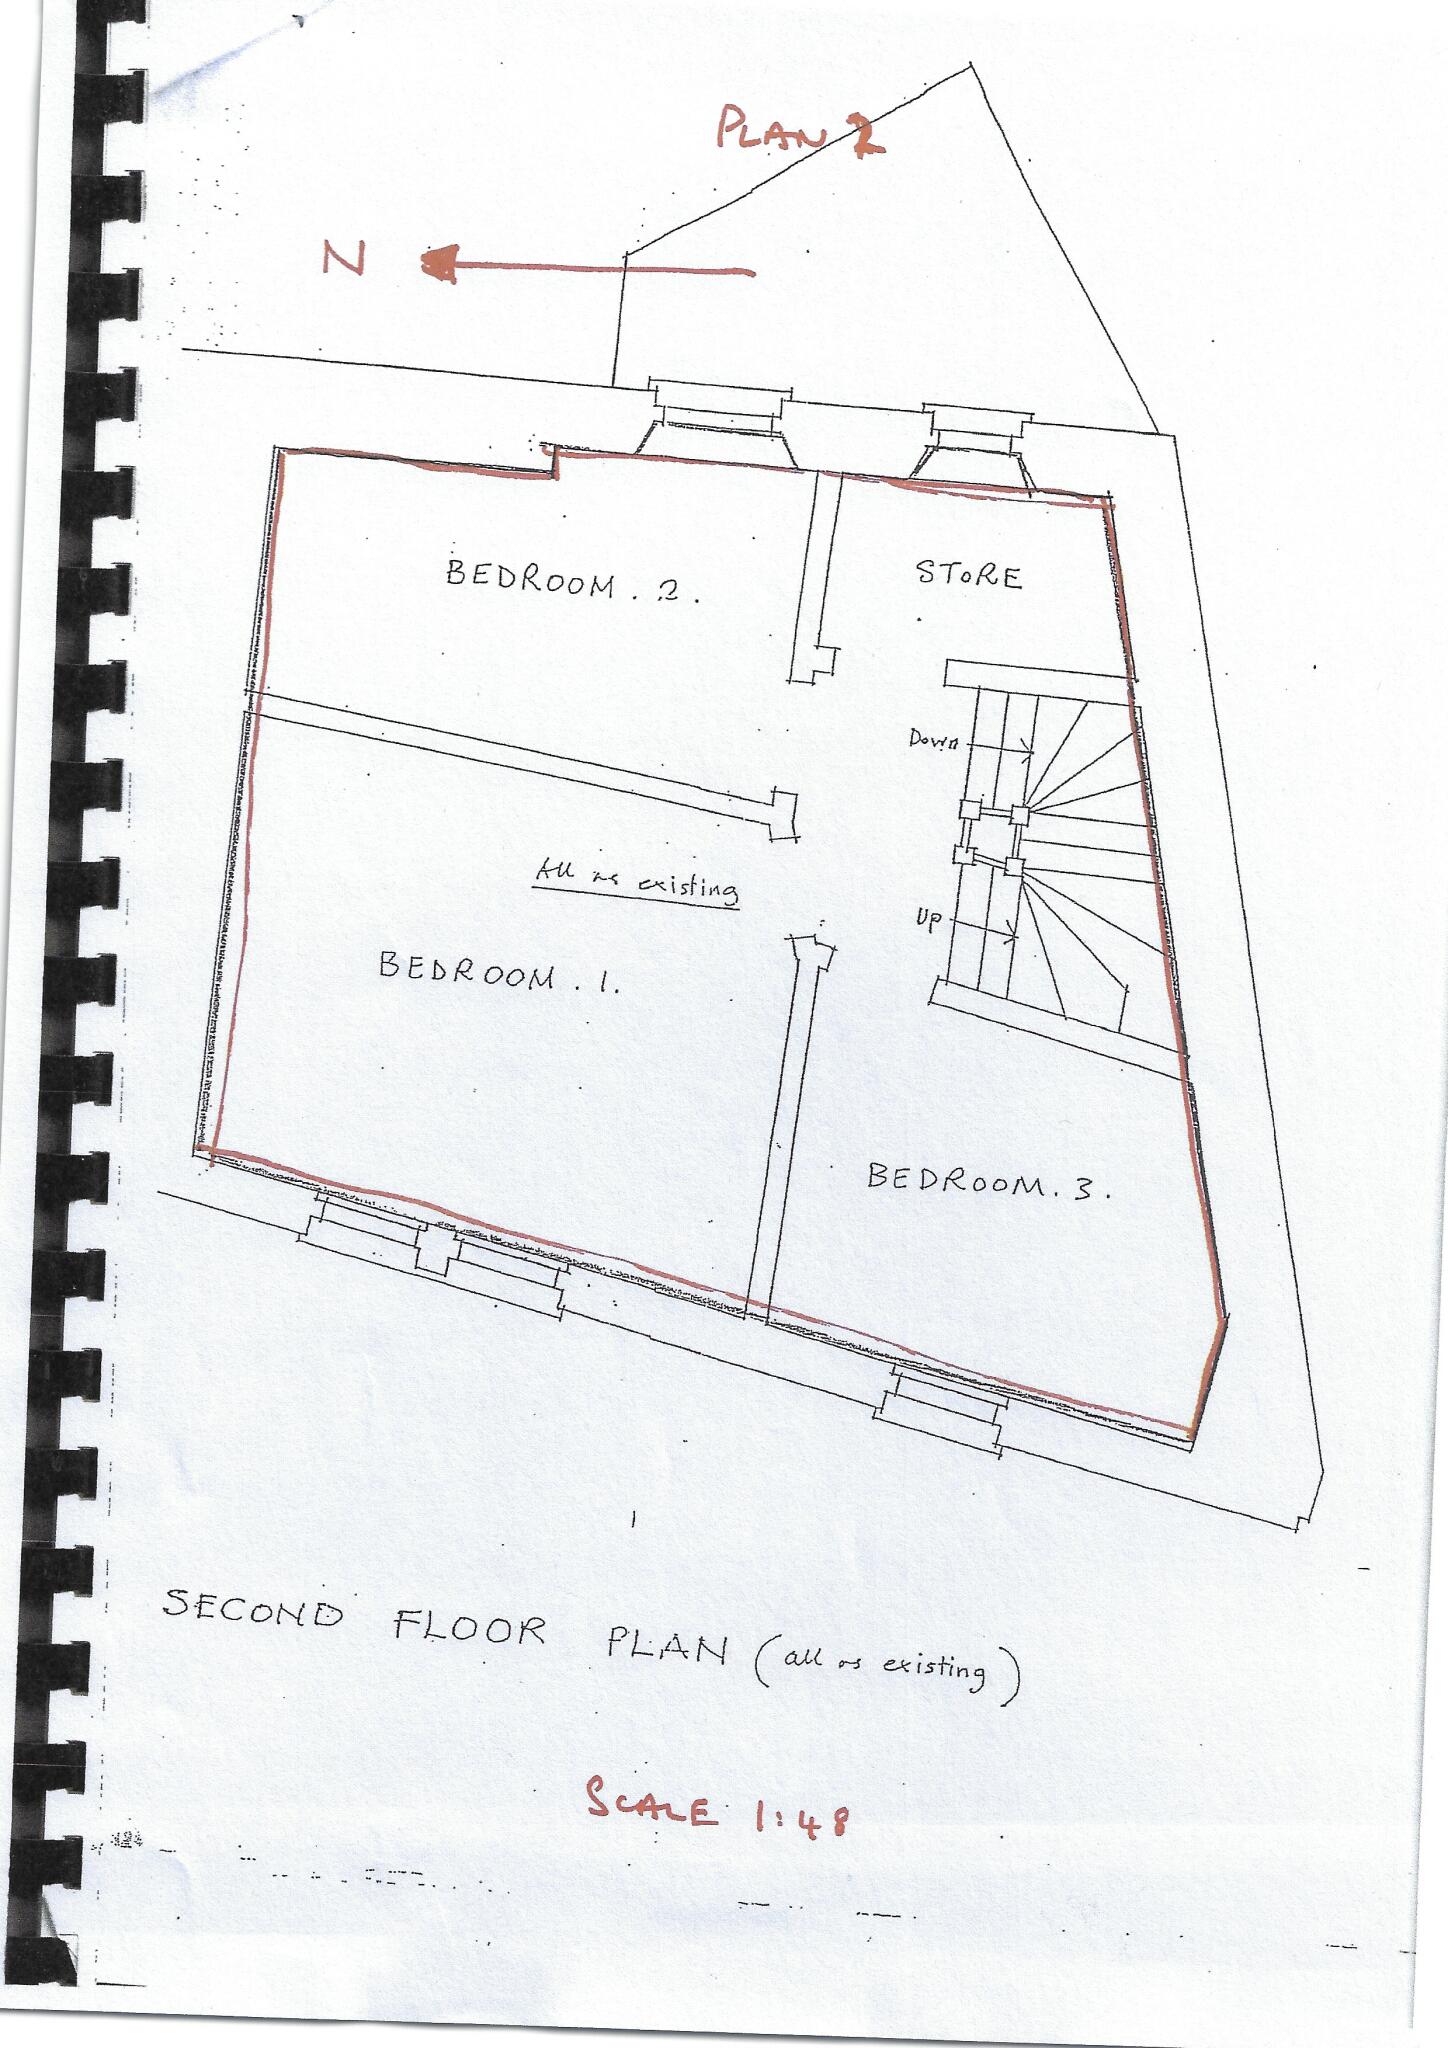 PLAN 2
N
BEDROOM . 2 .
STORE
Down
All as existing
Up
BEDROOM . 1 .
BEDROOM . 3 .
SECOND FLOOR PLAN (all as existing)
SCALE 1:48